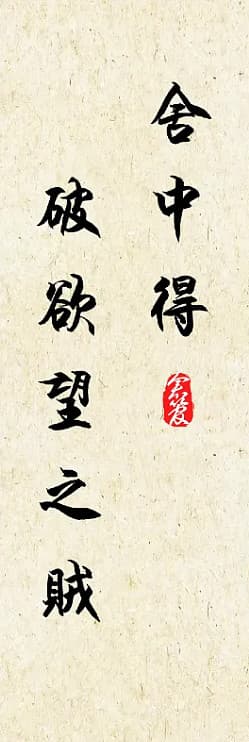 舍中得
破欲望之贼